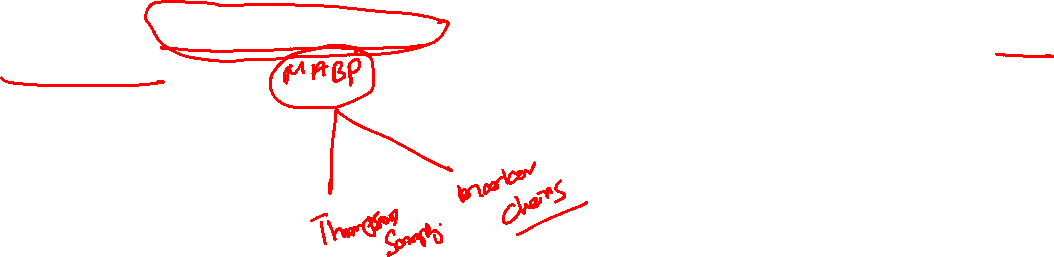 MABP
Thompson
Sampli
Markov
Chains